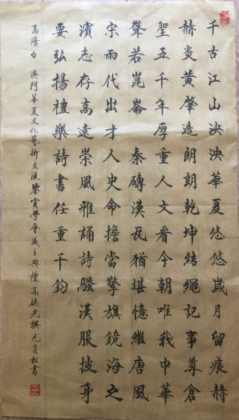 千古江山泱泱華夏悠悠歲月留痕赫
赫炎黃肇造朗朗乾坤結繩記事尊倉
聖五千年厚重人文看今朝唯我中華
聳若崑崙 秦磚漢瓦猶堪憶繼唐風
宋雨代出才人史命擔當擎旗鏡海之
濱志存高遠崇風雅誦詩騷漢服披身
要弘揚禮樂詩書任重千鈞
高陽台 澳門華夏文化藝術交流 學會成立 禮 高 光撰